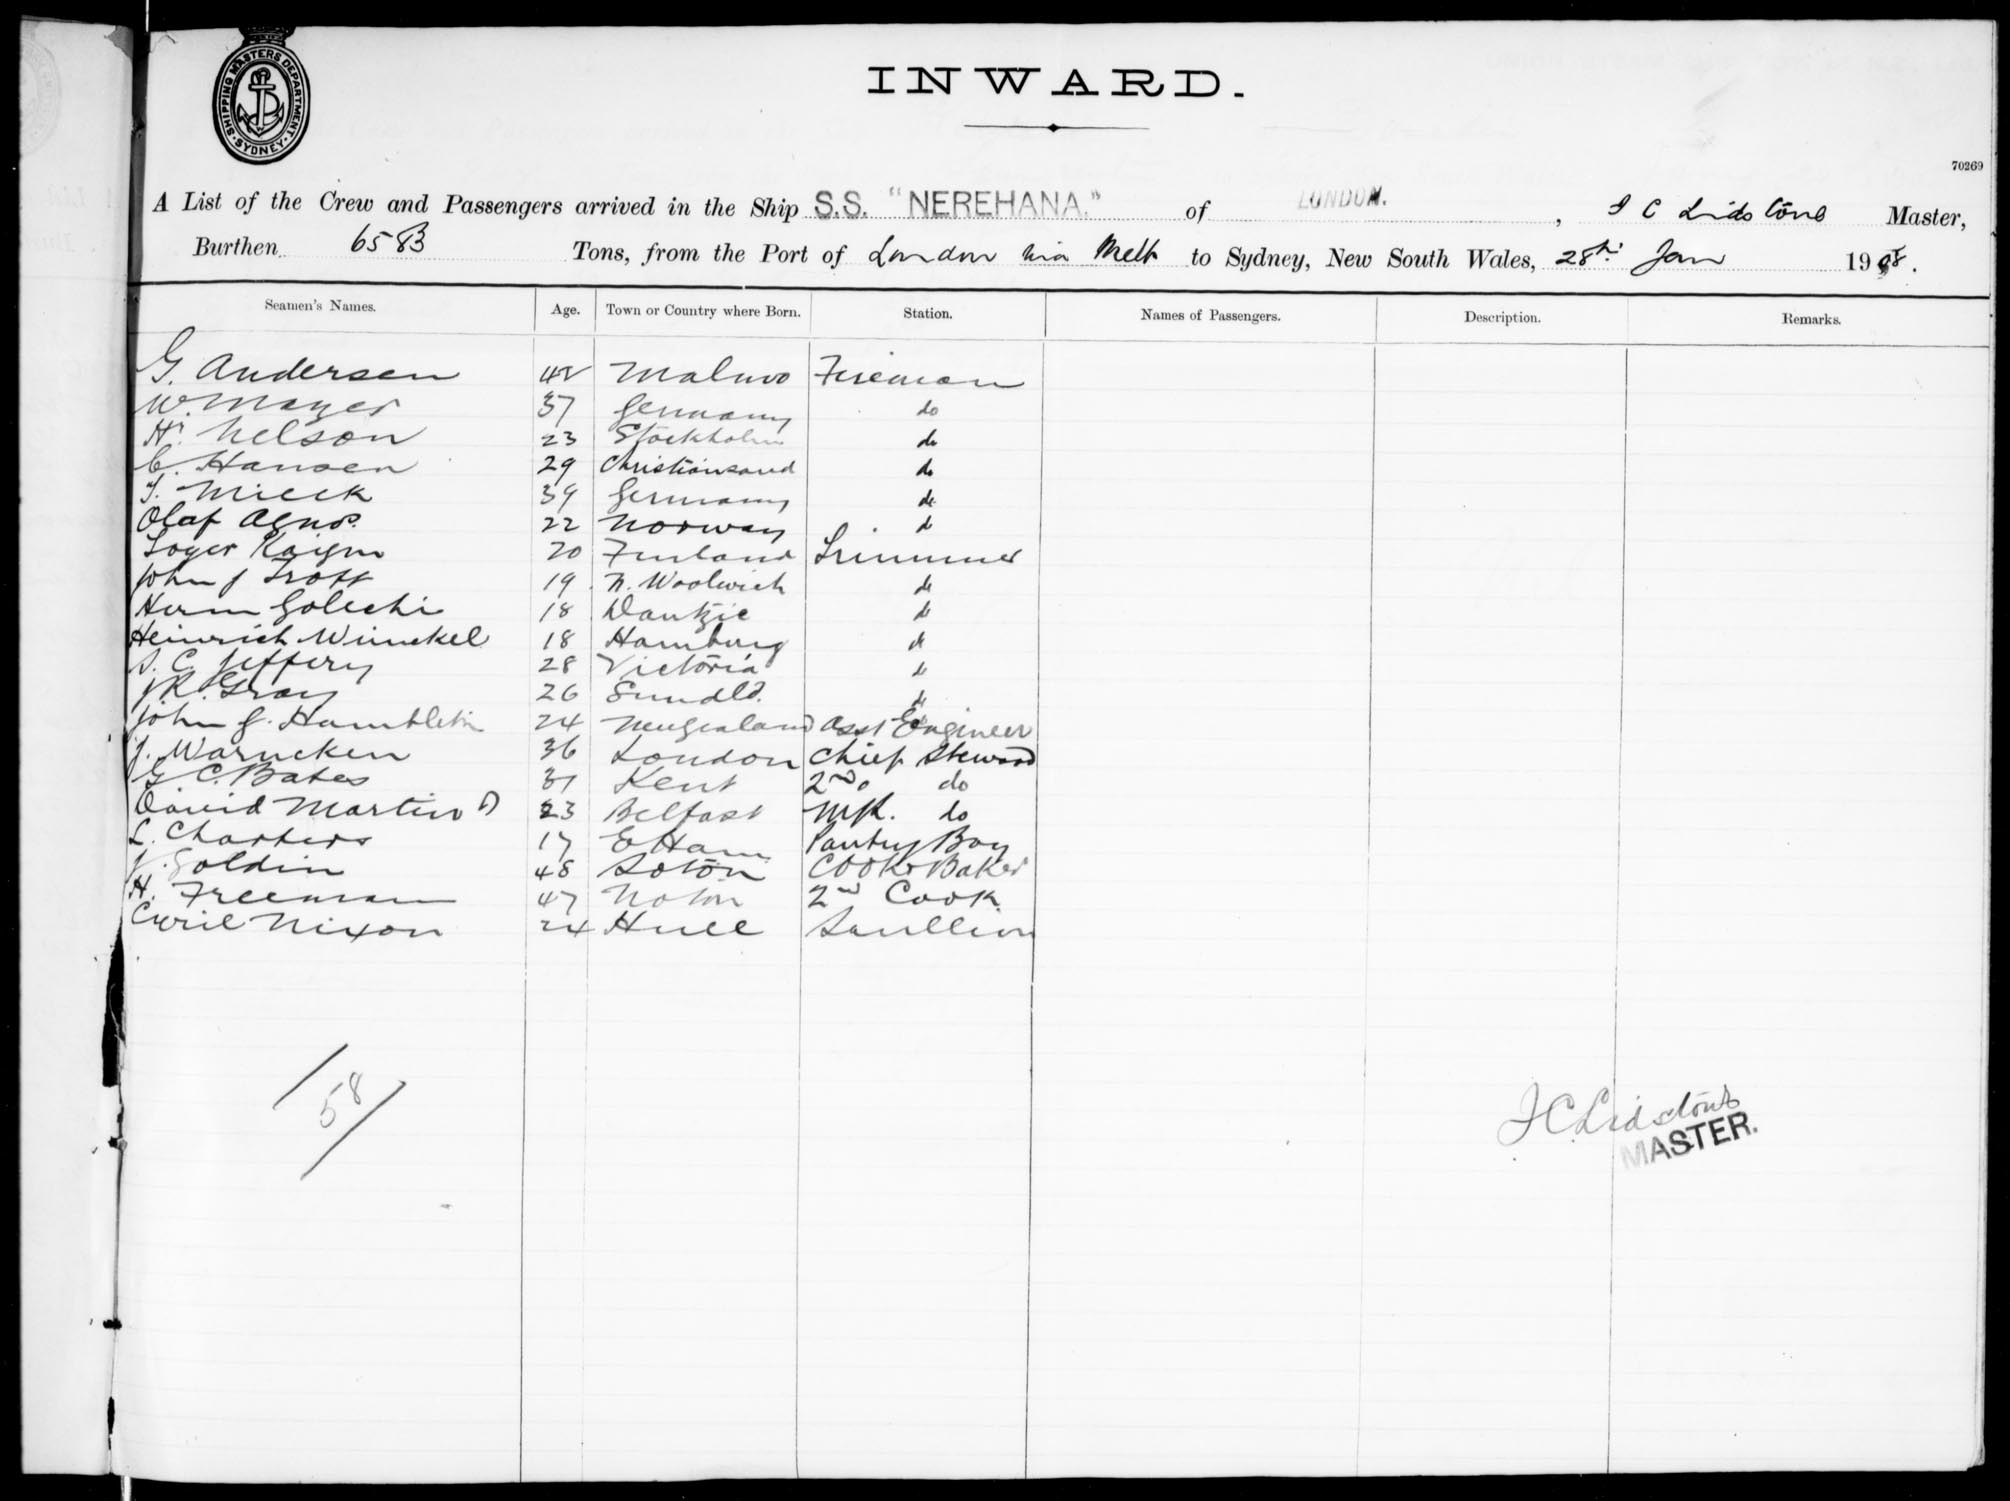 SHIPPING MASTERS DEPARTMENT · SYDNEY ·
INWARD.
70269
A List of the Crew and Passengers arrived in the Ship S.S. "NEREHANA." of LONDON., J C Lidstone Master,
Burthen 6583 Tons, from the Port of London via Melb to Sydney, New South Wales, 28th Jan 1908.
Seamen's Names. Age. Town or Country where Born. Station. Names of Passengers. Description. Remarks.
G. Andersen 42 Malmo Fireman
W. Mayer 37 Germany do
Hr. Nelson 23 Stockholm do
C. Hansen 29 Christiansand do
Mieck 39 Germany do
Olaf 22 Norway do
20 Finland Trimmer
John J Trott 19 N. Woolwich do
Herm Golechi 18 Dantzic do
Heinrich Winckel 18 Hamburg do
S. C. Jeffery 28 Victoria do
J R. Gray 26 Sundld. do
John G. Hambleton 24 New Zealand Asst Engineer
J. Warncken 36 London Chief Steward
G C. Bates 31 Kent 2nd do
David Martin 23 Belfast MR. do
L. Charters 17 E Ham Pantry Boy
J. Goldin 48 Soton Cook & Baker
H. Freeman 47 Noton 2nd Cook
Cyril Nixon 24 Hull Scullion
58
J C Lidstone
MASTER.